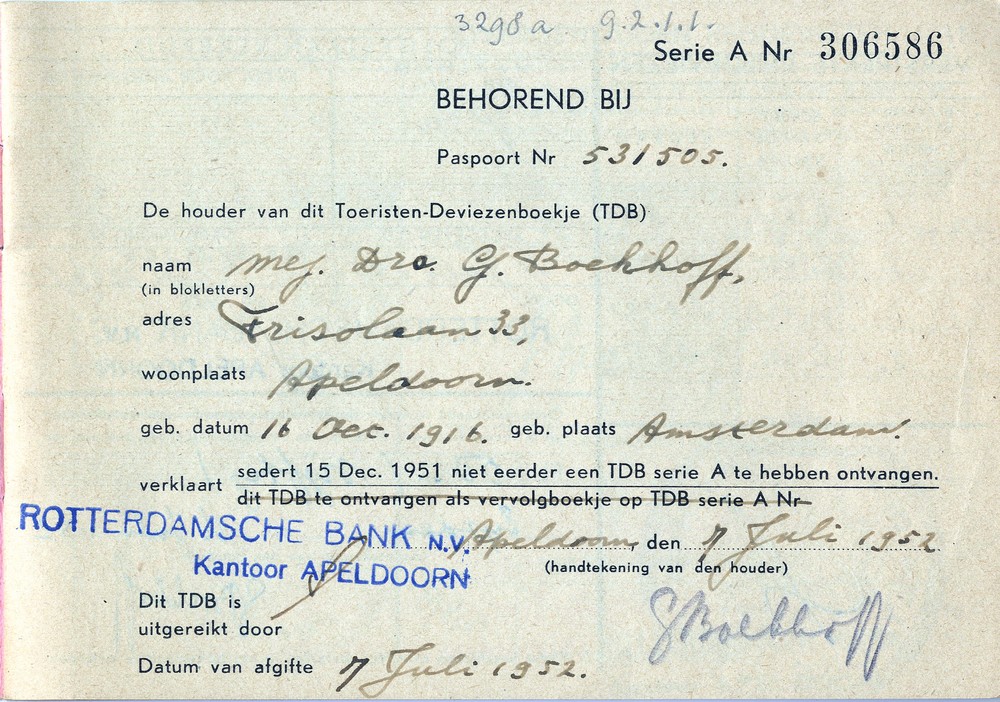 3298a 9.2.1.1.
Serie A Nr 306586
BEHOREND BIJ
Paspoort Nr 531505.
De houder van dit Toeristen-Deviezenboekje (TDB)
naam Mej. Dra. G. Boekhoff,
(in blokletters)
adres Frisolaan 33,
woonplaats Apeldoorn.
geb. datum 16 Oct. 1916. geb. plaats Amsterdam.
verklaart sedert 15 Dec. 1951 niet eerder een TDB serie A te hebben ontvangen.
dit TDB te ontvangen als vervolgboekje op TDB serie A Nr
ROTTERDAMSCHE BANK N.V. Apeldoorn, den 7 Juli 1952
Kantoor APELDOORN (handtekening van den houder)
Dit TDB is
uitgereikt door GBoekhoff
Datum van afgifte 7 Juli 1952.